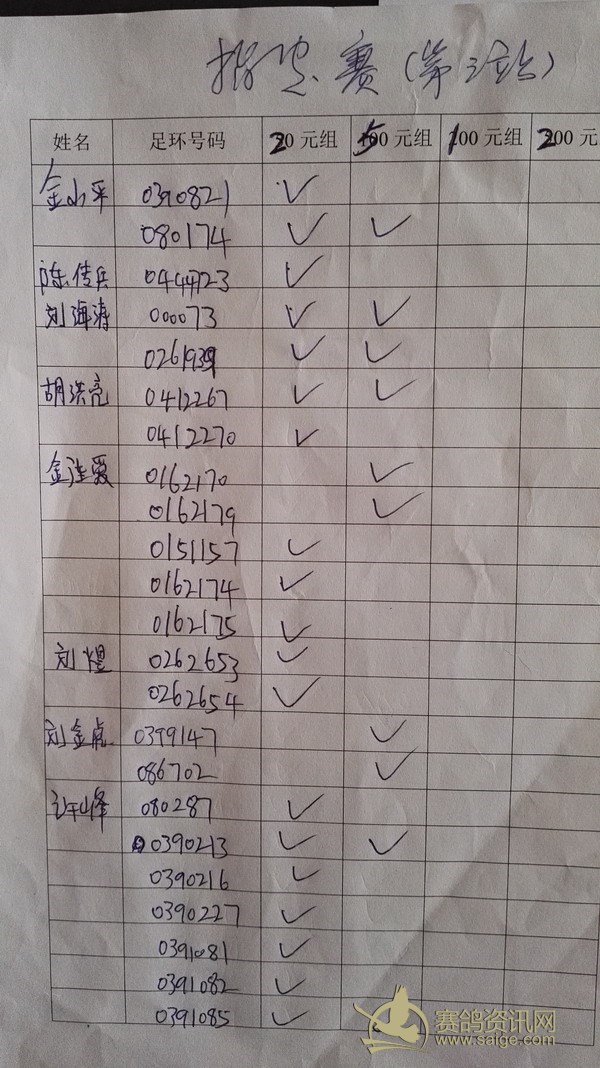 指定赛(第三站)
姓名 足环号码 20元组 50元组 100元组 200元
金小平 0390821 ✓
080174 ✓ ✓
陈传兵 0444723 ✓
刘海涛 000073 ✓ ✓
0261939 ✓ ✓
胡洪亮 0412267 ✓ ✓
0412270 ✓
金连爱 0162170 ✓
0162179 ✓
0151157 ✓
0162174 ✓
0162175 ✓
刘煜 0262653 ✓
0262654 ✓
刘金虎 0399147 ✓
086702 ✓
许峰 080287 ✓
0390213 ✓ ✓
0390216 ✓
0390227 ✓
0391081 ✓
0391082 ✓
0391085 ✓
赛鸽资讯网
www.saige.com